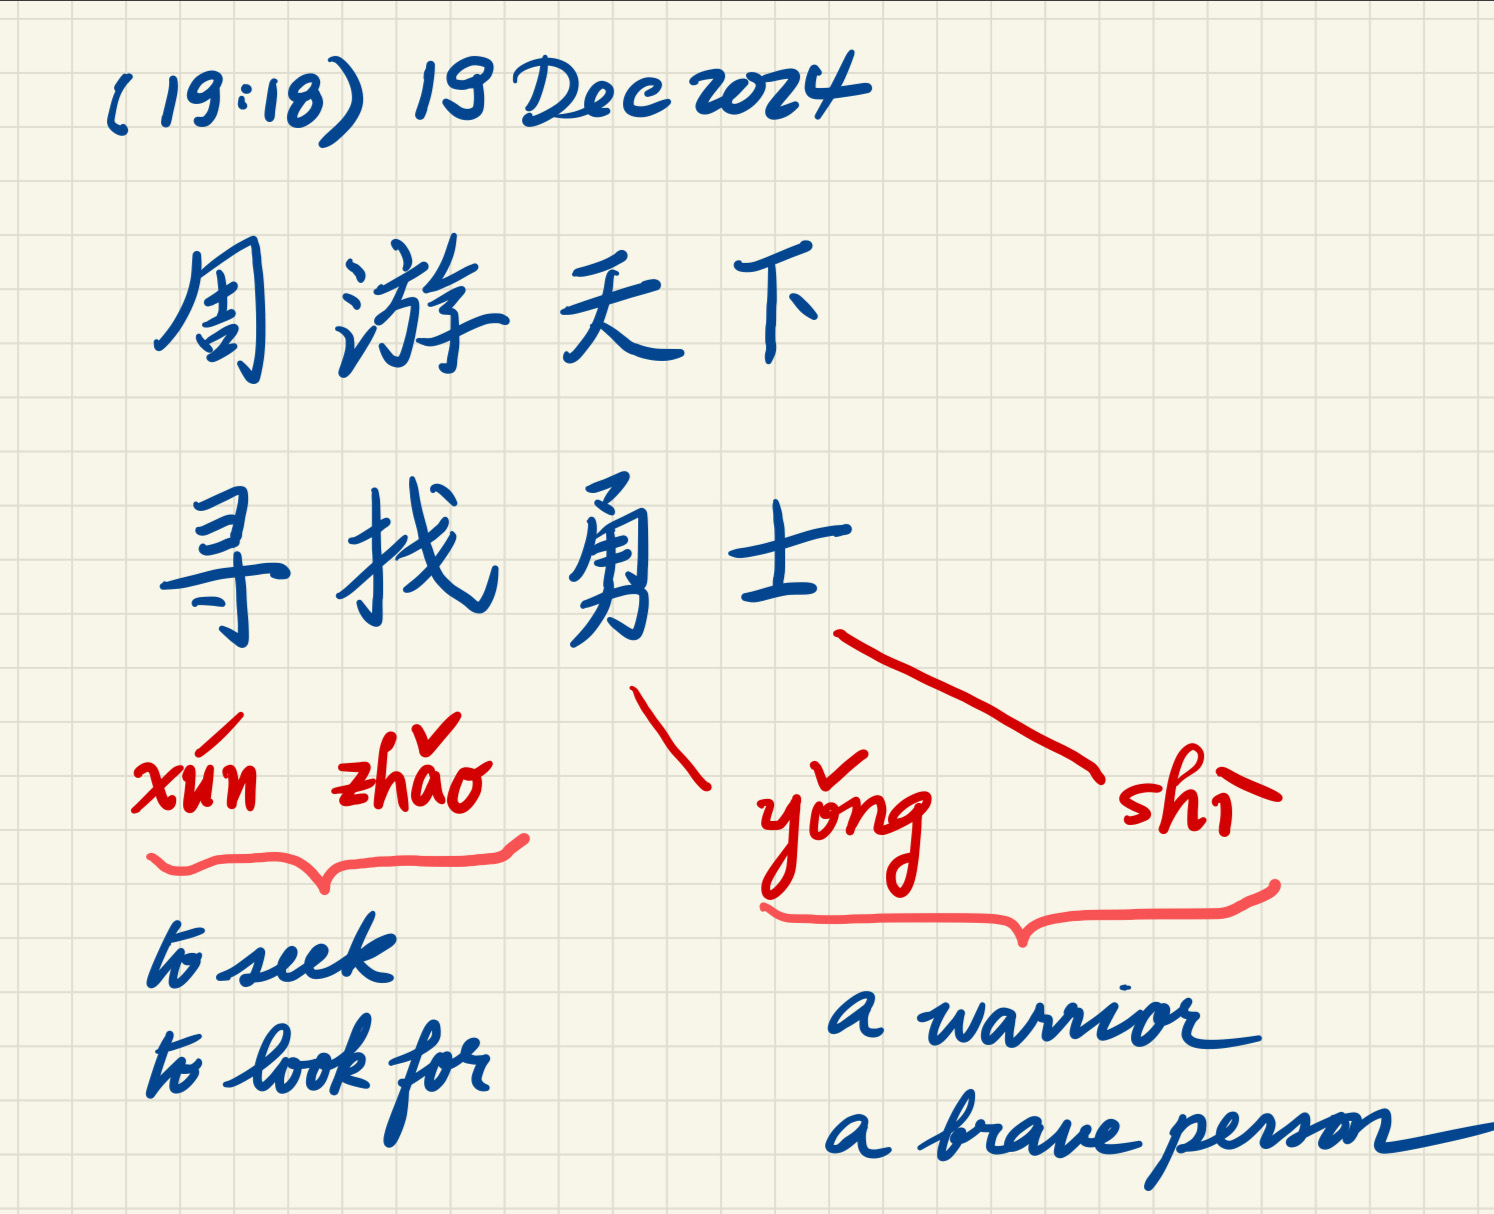 (19:18) 19 Dec 2024
周游天下
寻找勇士
xún zhǎo yǒng shì
to seek
to look for
a warrior
a brave person